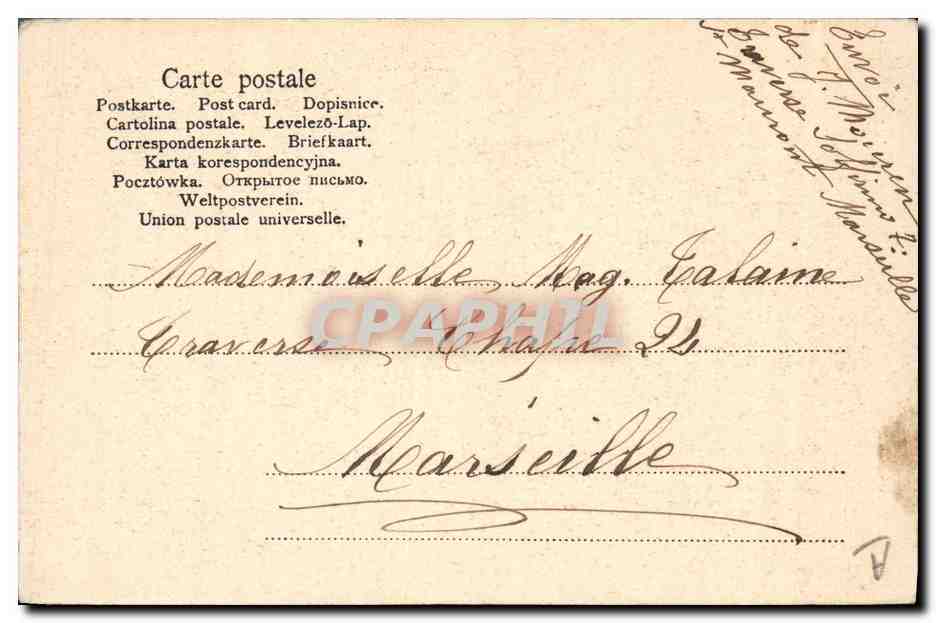 Carte postale
Postkarte. Post card. Dopisnice.
Cartolina postale. Levelező-Lap.
Correspondenzkarte. Briefkaart.
Karta korespondencyjna.
Pocztówka. Открытое письмо.
Weltpostverein.
Union postale universelle.
Envoi
de J. Mouren
Traverse 7.
St Mauront Marseille
Mademoiselle Mag. Talaine
CPAPHIL
Traverse 24
Marseille
A